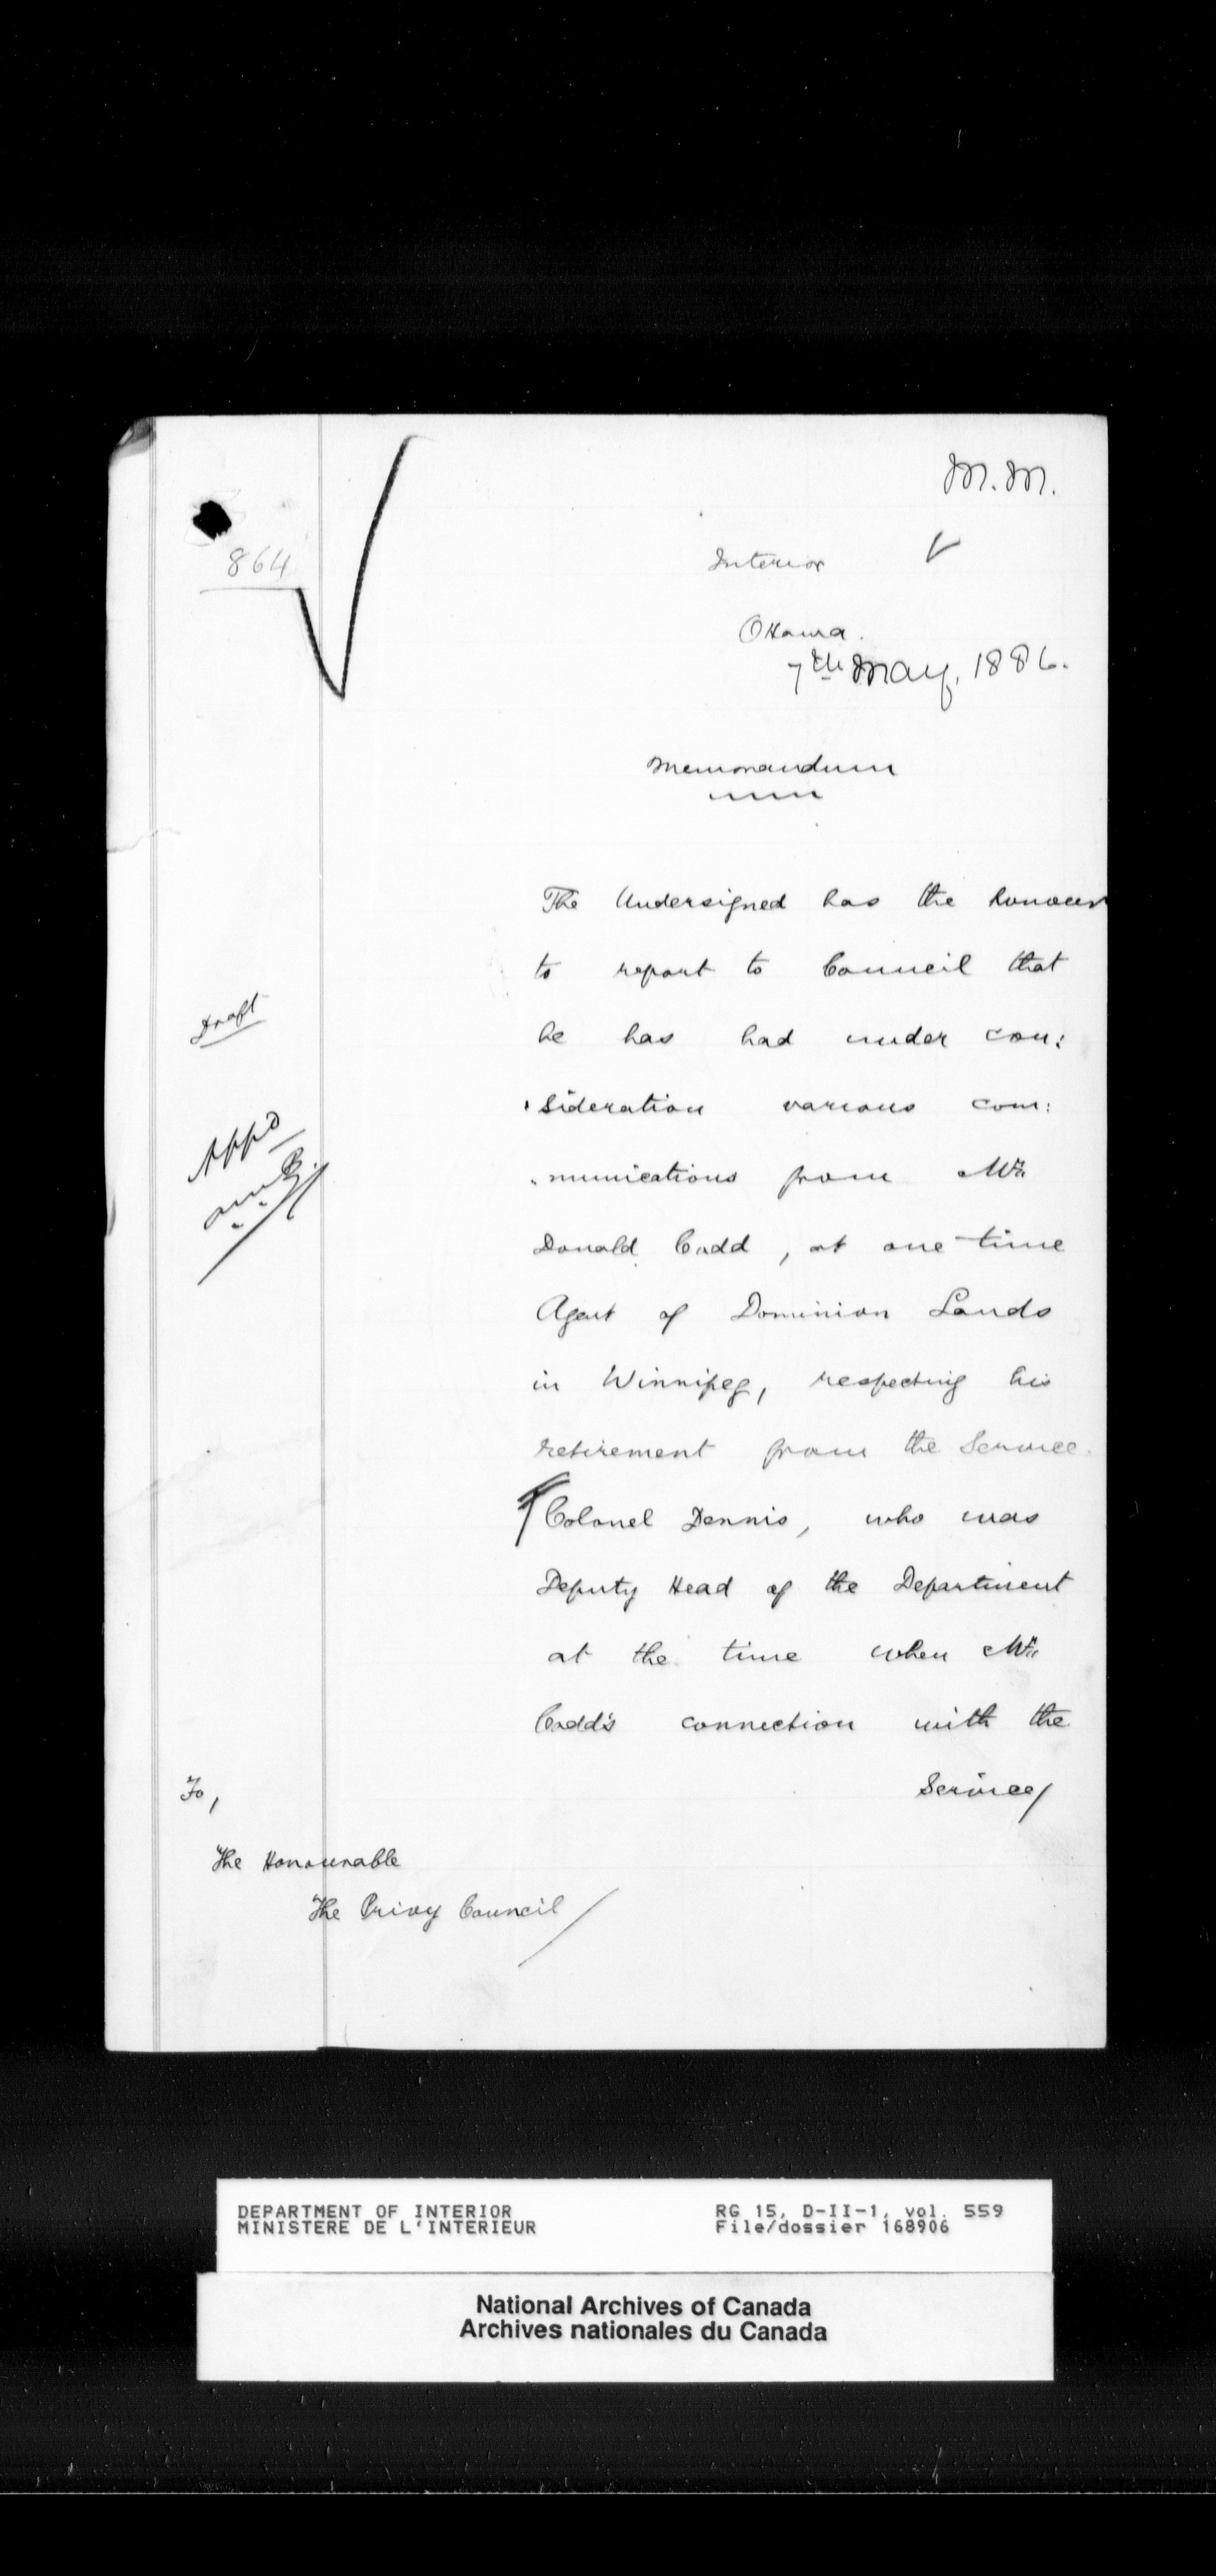 M.M.
864
Interior
Ottawa.
7th May, 1886.
Memorandum
The Undersigned has the honour
to report to Council that
he has had under con:
:sideration various com:
:munications from Mr.
Donald Codd, at one time
Agent of Dominion Lands
in Winnipeg, respecting his
retirement from the Service.
Colonel Dennis, who was
Deputy Head of the Department
at the time when Mr.
Codd's connection with the
Service/
Draft
Appd
To,
The Honourable
The Privy Council
DEPARTMENT OF INTERIOR
MINISTERE DE L'INTERIEUR
RG 15, D-II-1, vol. 559
File/dossier 168906
National Archives of Canada
Archives nationales du Canada